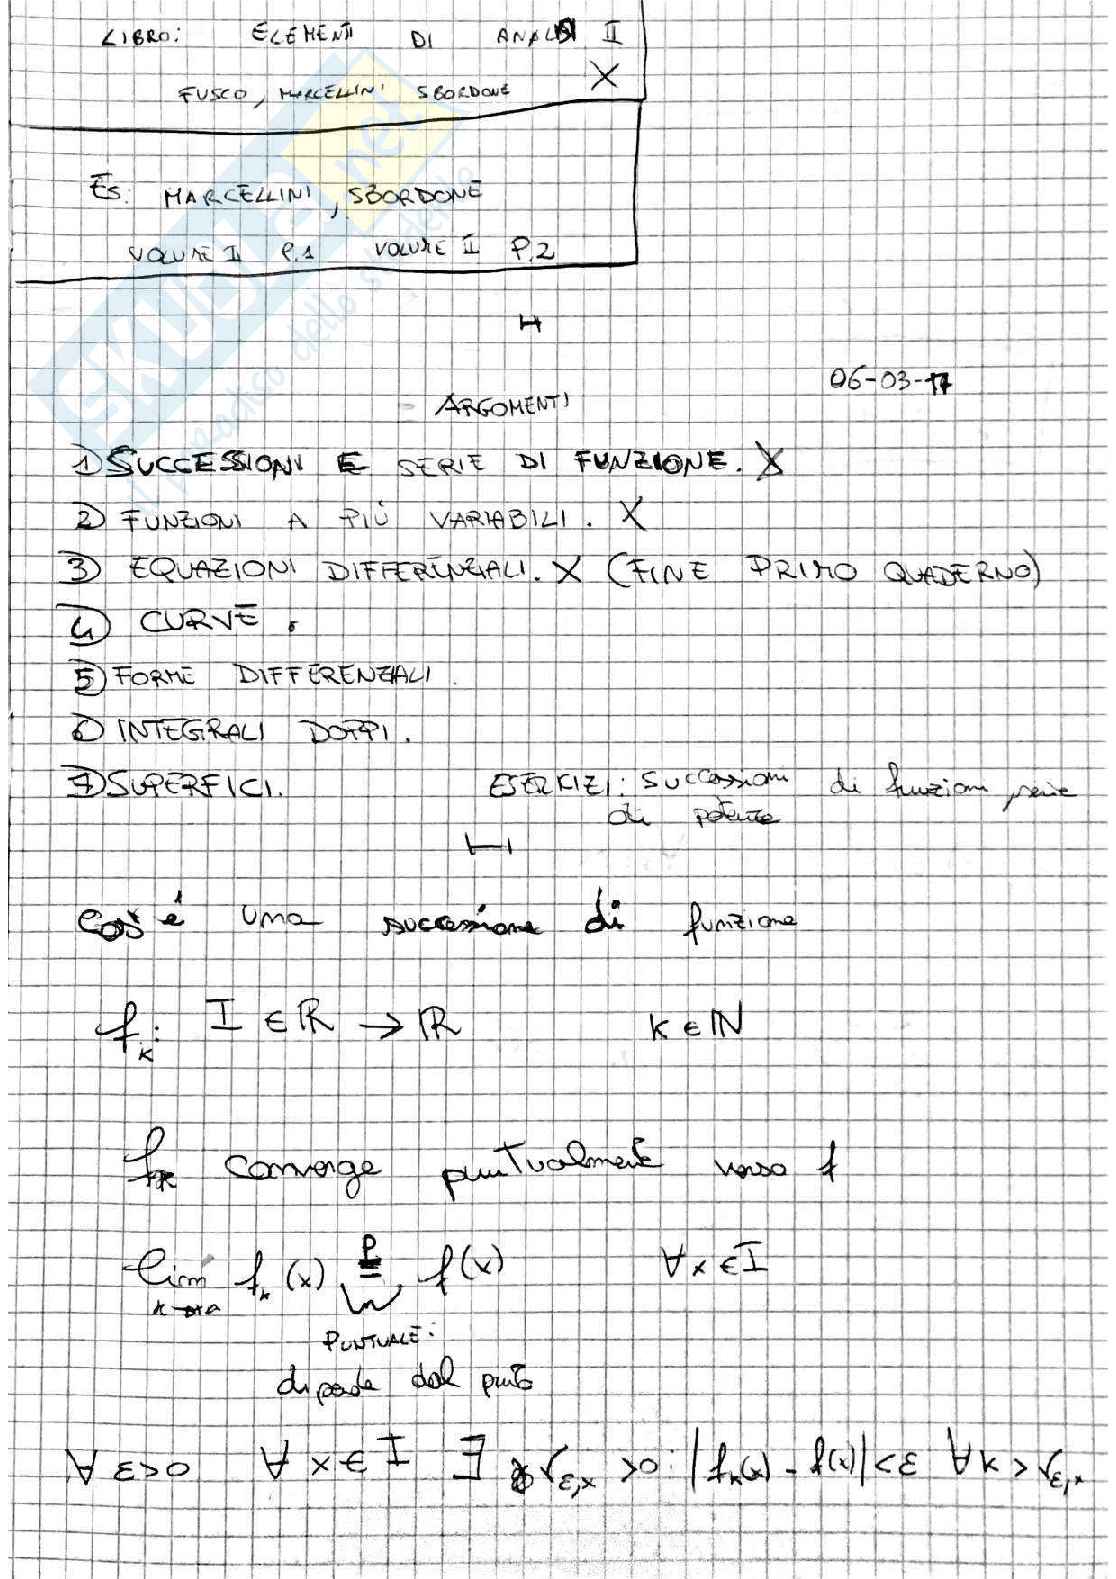 LIBRO: ELEMENTI DI ANALISI II
FUSCO, MARCELLINI SBORDONE X
ES. MARCELLINI, SBORDONE
VOLUME II P.1 VOLUME II P.2
SKUOLA.net
06-03-17
ARGOMENTI
1) SUCCESSIONI E SERIE DI FUNZIONE. X
2) FUNZIONI A PIÚ VARIABILI. X
3) EQUAZIONI DIFFERENZIALI. X (FINE PRIMO QUADERNO)
4) CURVE.
5) FORME DIFFERENZIALI
6) INTEGRALI DOPPI.
7) SUPERFICI.
ESERCIZI: successioni di funzioni serie
di potenze
Cos'é una successione di funzione
fₖ: I ∈ ℝ → ℝ k ∈ ℕ
fₖ converge puntualmente verso f
lim fₖ(x) P= f(x) ∀x ∈ I
k→∞
PUNTUALE:
dipende dal punto
∀ ε>0 ∀ x ∈ I ∃ ν_{ε,x} >0: |fₖ(x) - f(x)| < ε ∀k > ν_{ε,x}